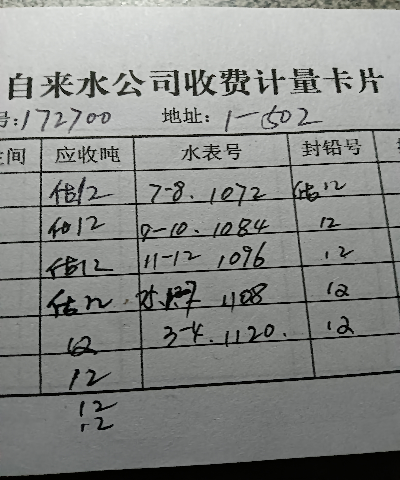 自来水公司收费计量卡片
号:172700 地址: 1-502
间 应收吨 水表号 封铅号
估12 7-8. 1072 估12
估12 9-10. 1084 12
估12 11-12 1096 12
估12 1108 12
12 3-4. 1120. 12
12
12
12